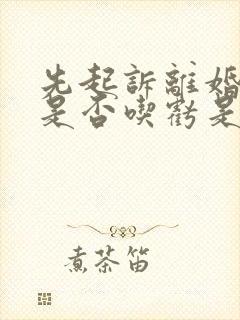 先起訴離婚
是否喫虧是
煮茶笛